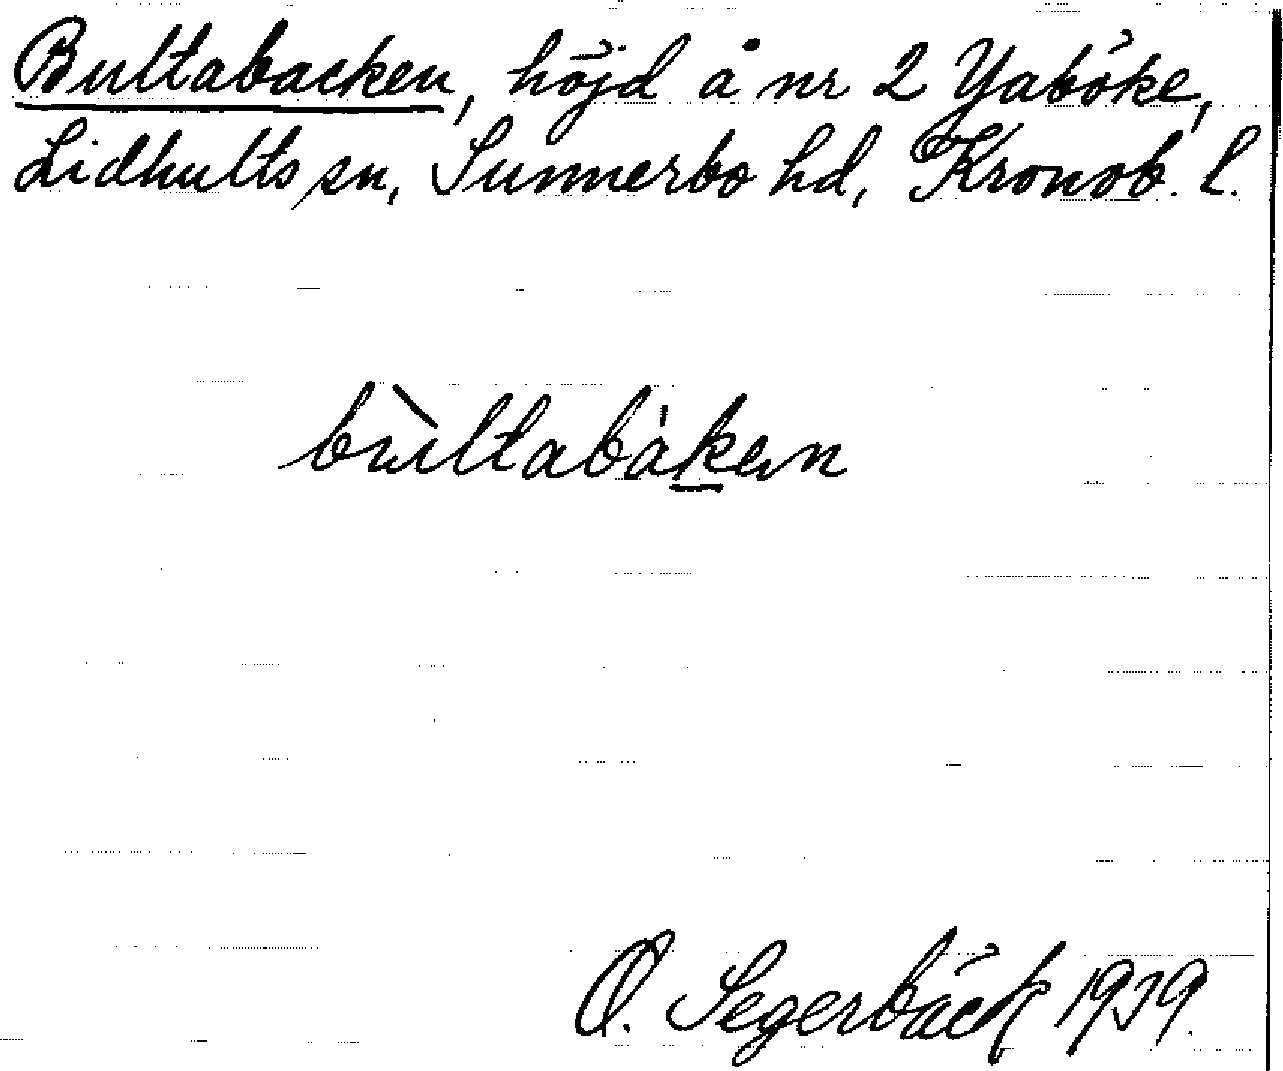 Bultabacken, höjd å nr 2 Yaböke,
Lidhults sn, Sunnerbo hd, Kronob. l.
bùltabàken
O. Segerbäck 1939.